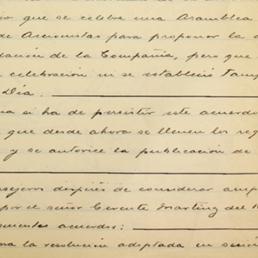 que se celebre una Asamblea
de Accionistas para proponer la
de la Compañía, pero que
celebración ni se estableció
Día.
si ha de persistir este acuerdo
que desde ahora se llenen los
y se autorice la publicación de
después de considerar
por el señor Gerente Martínez del
acuerdos:
la resolución adoptada en